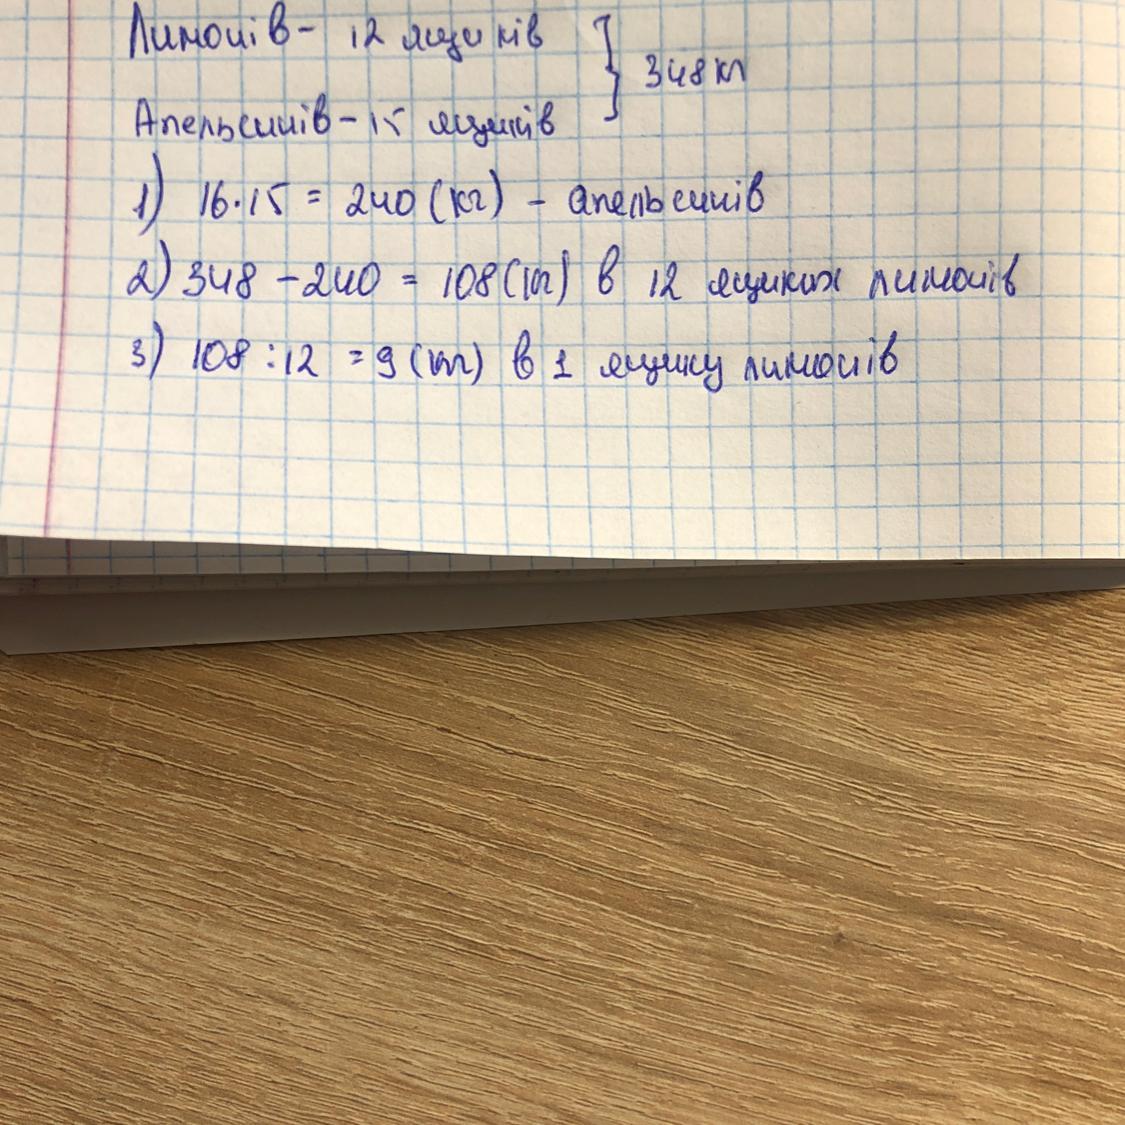 Лимонів - 12 ящиків
348 кг
Апельсинів - 15 ящиків
1) 16·15 = 240 (кг) - апельсинів
2) 348 - 240 = 108 (кг) в 12 ящиках лимонів
3) 108 : 12 = 9 (кг) в 1 ящику лимонів